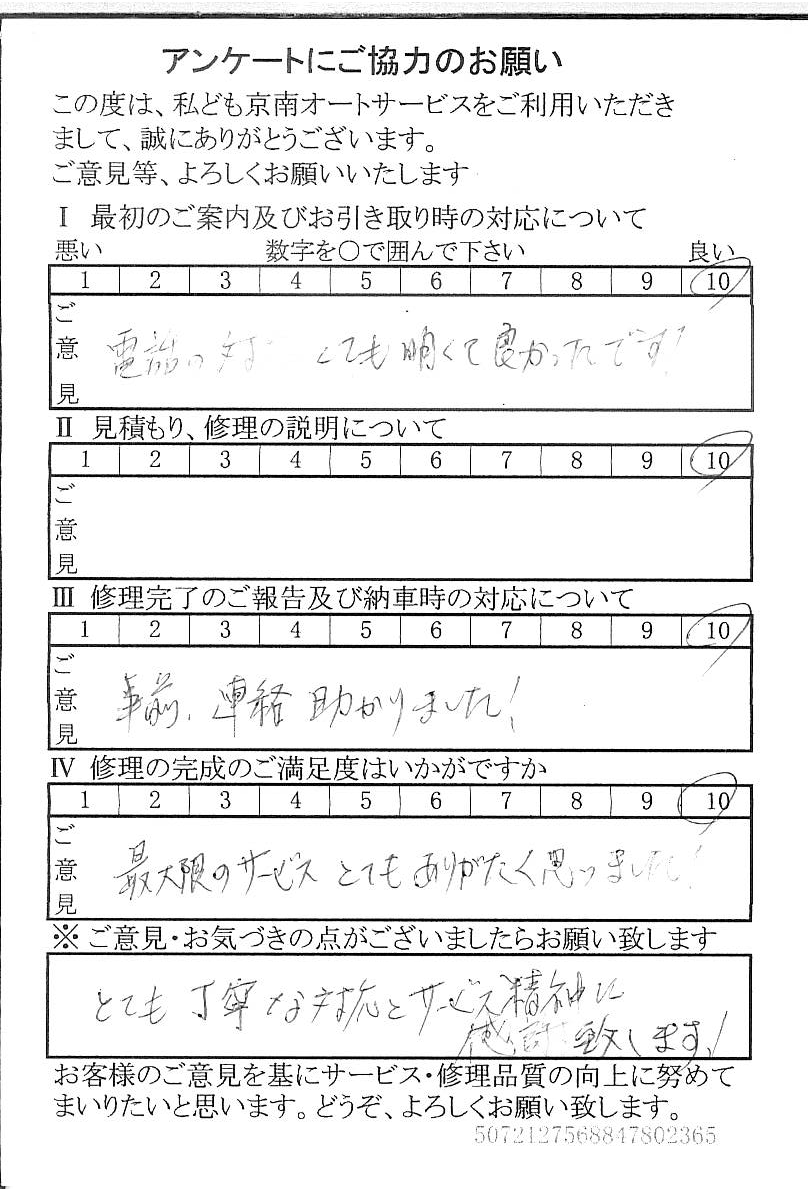 アンケートにご協力のお願い
この度は、私ども京南オートサービスをご利用いただき
まして、誠にありがとうございます。
ご意見等、よろしくお願いいたします
Ⅰ 最初のご案内及びお引き取り時の対応について
悪い 数字を○で囲んで下さい 良い
1 2 3 4 5 6 7 8 9 10
ご意見
電話の対 とても明くて良かったです!
Ⅱ 見積もり、修理の説明について
1 2 3 4 5 6 7 8 9 10
ご意見
Ⅲ 修理完了のご報告及び納車時の対応について
1 2 3 4 5 6 7 8 9 10
ご意見
事前、連絡助かりました!
Ⅳ 修理の完成のご満足度はいかがですか
1 2 3 4 5 6 7 8 9 10
ご意見
最大限のサービスとてもありがたく思いました!
※ ご意見・お気づきの点がございましたらお願い致します
とても丁寧な対応とサービス精神に
感謝致します!
お客様のご意見を基にサービス・修理品質の向上に努めて
まいりたいと思います。どうぞ、よろしくお願い致します。
5072127568847802365